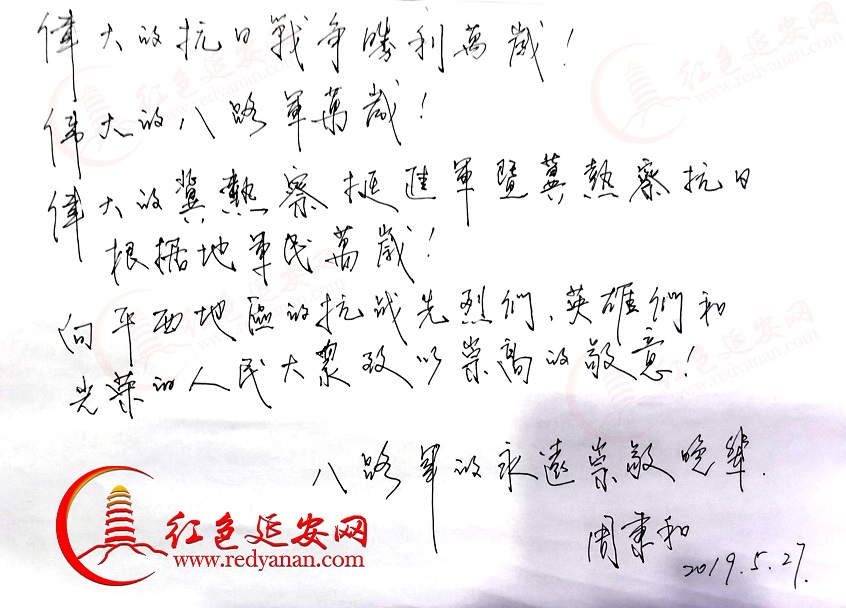 偉大的抗日戰争勝利萬歲！
偉大的八路軍萬歲！
偉大的冀熱察挺進軍暨冀熱察抗日
根据地軍民萬歲！
向平西地區的抗战先烈們、英雄們和
光荣的人民大眾致以崇高的敬意！
八路軍的永遠崇敬晚輩.
周秉和
2019.5.27.
红色延安网
www.redyanan.com
红色延安网
www.redyanan.com